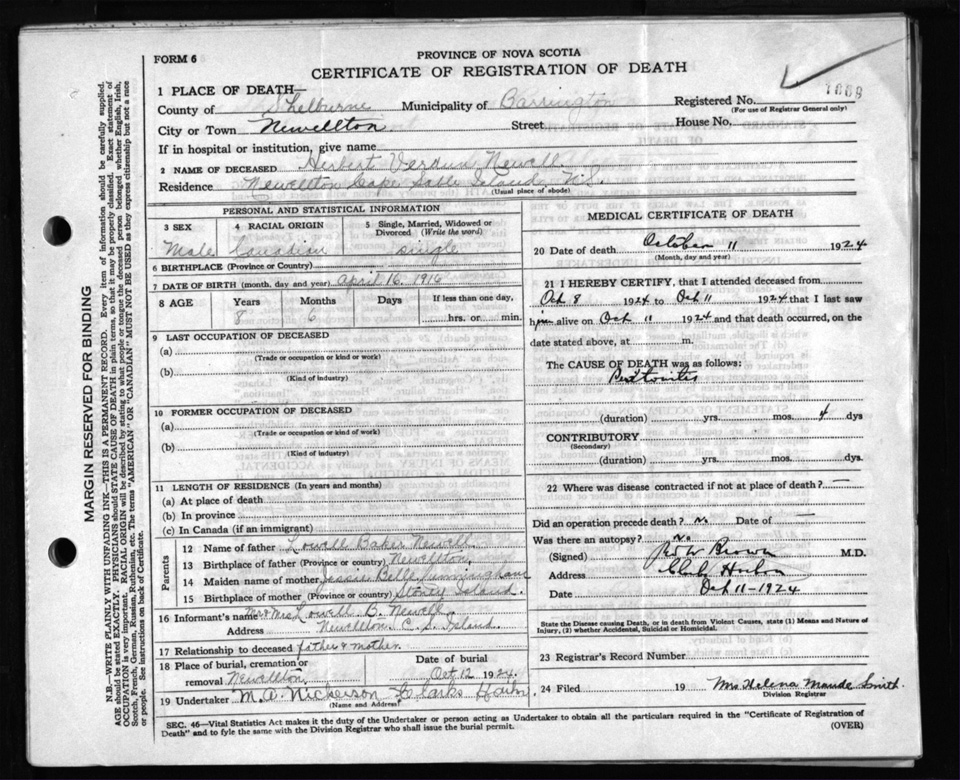 PROVINCE OF NOVA SCOTIA
FORM 6
CERTIFICATE OF REGISTRATION OF DEATH
1 PLACE OF DEATH—
County of Shelburne Municipality of Barrington Registered No.
(For use of Registrar General only)
City or Town Newellton Street House No.
If in hospital or institution, give name
2 NAME OF DECEASED Herbert Verdun Newell
Residence Newellton Cape Sable Island, N.S.
(Usual place of abode)
PERSONAL AND STATISTICAL INFORMATION
3 SEX 4 RACIAL ORIGIN 5 Single, Married, Widowed or Divorced (Write the word)
Male Canadian Single
6 BIRTHPLACE (Province or Country)
7 DATE OF BIRTH (month, day and year) April 16, 1916
8 AGE Years Months Days If less than one day,
8 6 hrs. or min.
9 LAST OCCUPATION OF DECEASED
(a)
(Trade or occupation or kind or work)
(b)
(Kind of industry)
10 FORMER OCCUPATION OF DECEASED
(a)
(Trade or occupation or kind of work)
(b)
(Kind of industry)
11 LENGTH OF RESIDENCE (In years and months)
(a) At place of death
(b) In province
(c) In Canada (if an immigrant)
Parents
12 Name of father Lowell Baker Newell
13 Birthplace of father (Province or country) Newellton
14 Maiden name of mother Jessie Belle Cunningham
15 Birthplace of mother (Province or country) Stoney Island.
16 Informant's name Mr & Mrs Lowell B. Newell.
Address Newellton C. S. Island.
17 Relationship to deceased father & mother.
18 Place of burial, cremation or Date of burial
removal Newellton Oct 12 1924.
19 Undertaker M. A. Nickerson Clarks Harbor
(Name and Address)
MEDICAL CERTIFICATE OF DEATH
20 Date of death October 11 1924
(Month, day and year)
21 I HEREBY CERTIFY, that I attended deceased from
Oct 8 1924 to Oct 11 1924 that I last saw
him alive on Oct 11 1924 and that death occurred, on the
date stated above, at m.
The CAUSE OF DEATH was as follows:
Peritonitis
(duration) yrs. mos. 4 dys
CONTRIBUTORY
(Secondary)
(duration) yrs. mos. dys.
22 Where was disease contracted if not at place of death? —
Did an operation precede death? No Date of —
Was there an autopsy? No
(Signed) Brown M.D.
Address Clark's Harbor
Date Oct 11-1924
State the Disease causing Death, or in death from Violent Causes, state (1) Means and Nature of
Injury, (2) whether Accidental, Suicidal or Homicidal.
23 Registrar's Record Number
24 Filed 19 Mrs Helena Maude Smith.
Division Registrar
SEC. 46—Vital Statistics Act makes it the duty of the Undertaker or person acting as Undertaker to obtain all the particulars required in the "Certificate of Registration of
Death" and to fyle the same with the Division Registrar who shall issue the burial permit.
(OVER)
MARGIN RESERVED FOR BINDING
N.B.—WRITE PLAINLY WITH UNFADING INK—THIS IS A PERMANENT RECORD. Every item of information should be carefully supplied.
AGE should be stated EXACTLY. PHYSICIANS should STATE CAUSE OF DEATH in plain terms, so that it may be properly classified. Exact statement of
OCCUPATION is very important. RACIAL ORIGIN will be described by stating to what people or tongue the deceased person belonged whether English, Irish,
Scotch, French, German, Russian, Ruthenian, etc. The terms "AMERICAN" OR "CANADIAN" MUST NOT BE USED as they express citizenship but not a race
or people. See instructions on back of Certificate.